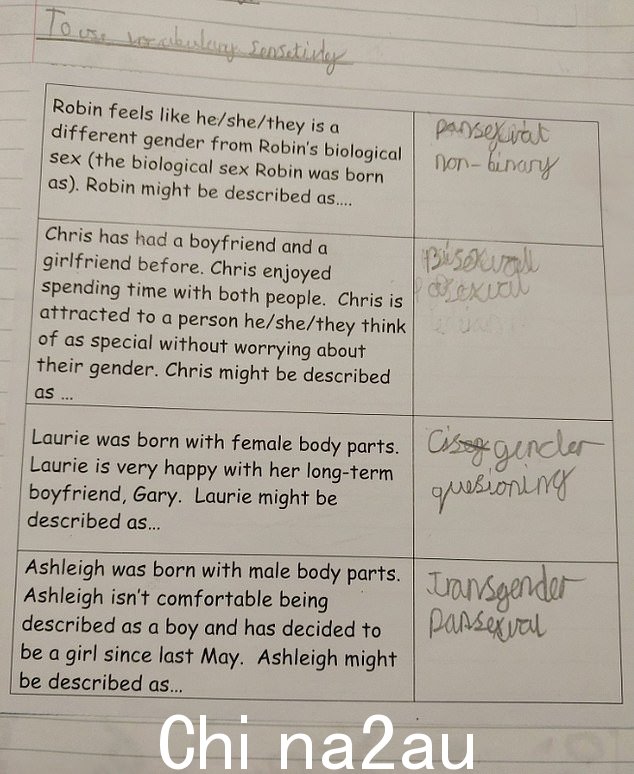 To use vocabulary sensetivley
Robin feels like he/she/they is a
different gender from Robin's biological
sex (the biological sex Robin was born
as). Robin might be described as....
pansexual
non-binary
Chris has had a boyfriend and a
girlfriend before. Chris enjoyed
spending time with both people. Chris is
attracted to a person he/she/they think
of as special without worrying about
their gender. Chris might be described
as ...
Bisexual
asexual
Laurie was born with female body parts.
Laurie is very happy with her long-term
boyfriend, Gary. Laurie might be
described as...
Cis gender
quesioning
Ashleigh was born with male body parts.
Ashleigh isn't comfortable being
described as a boy and has decided to
be a girl since last May. Ashleigh might
be described as...
transgender
pansexual
Chi na2au